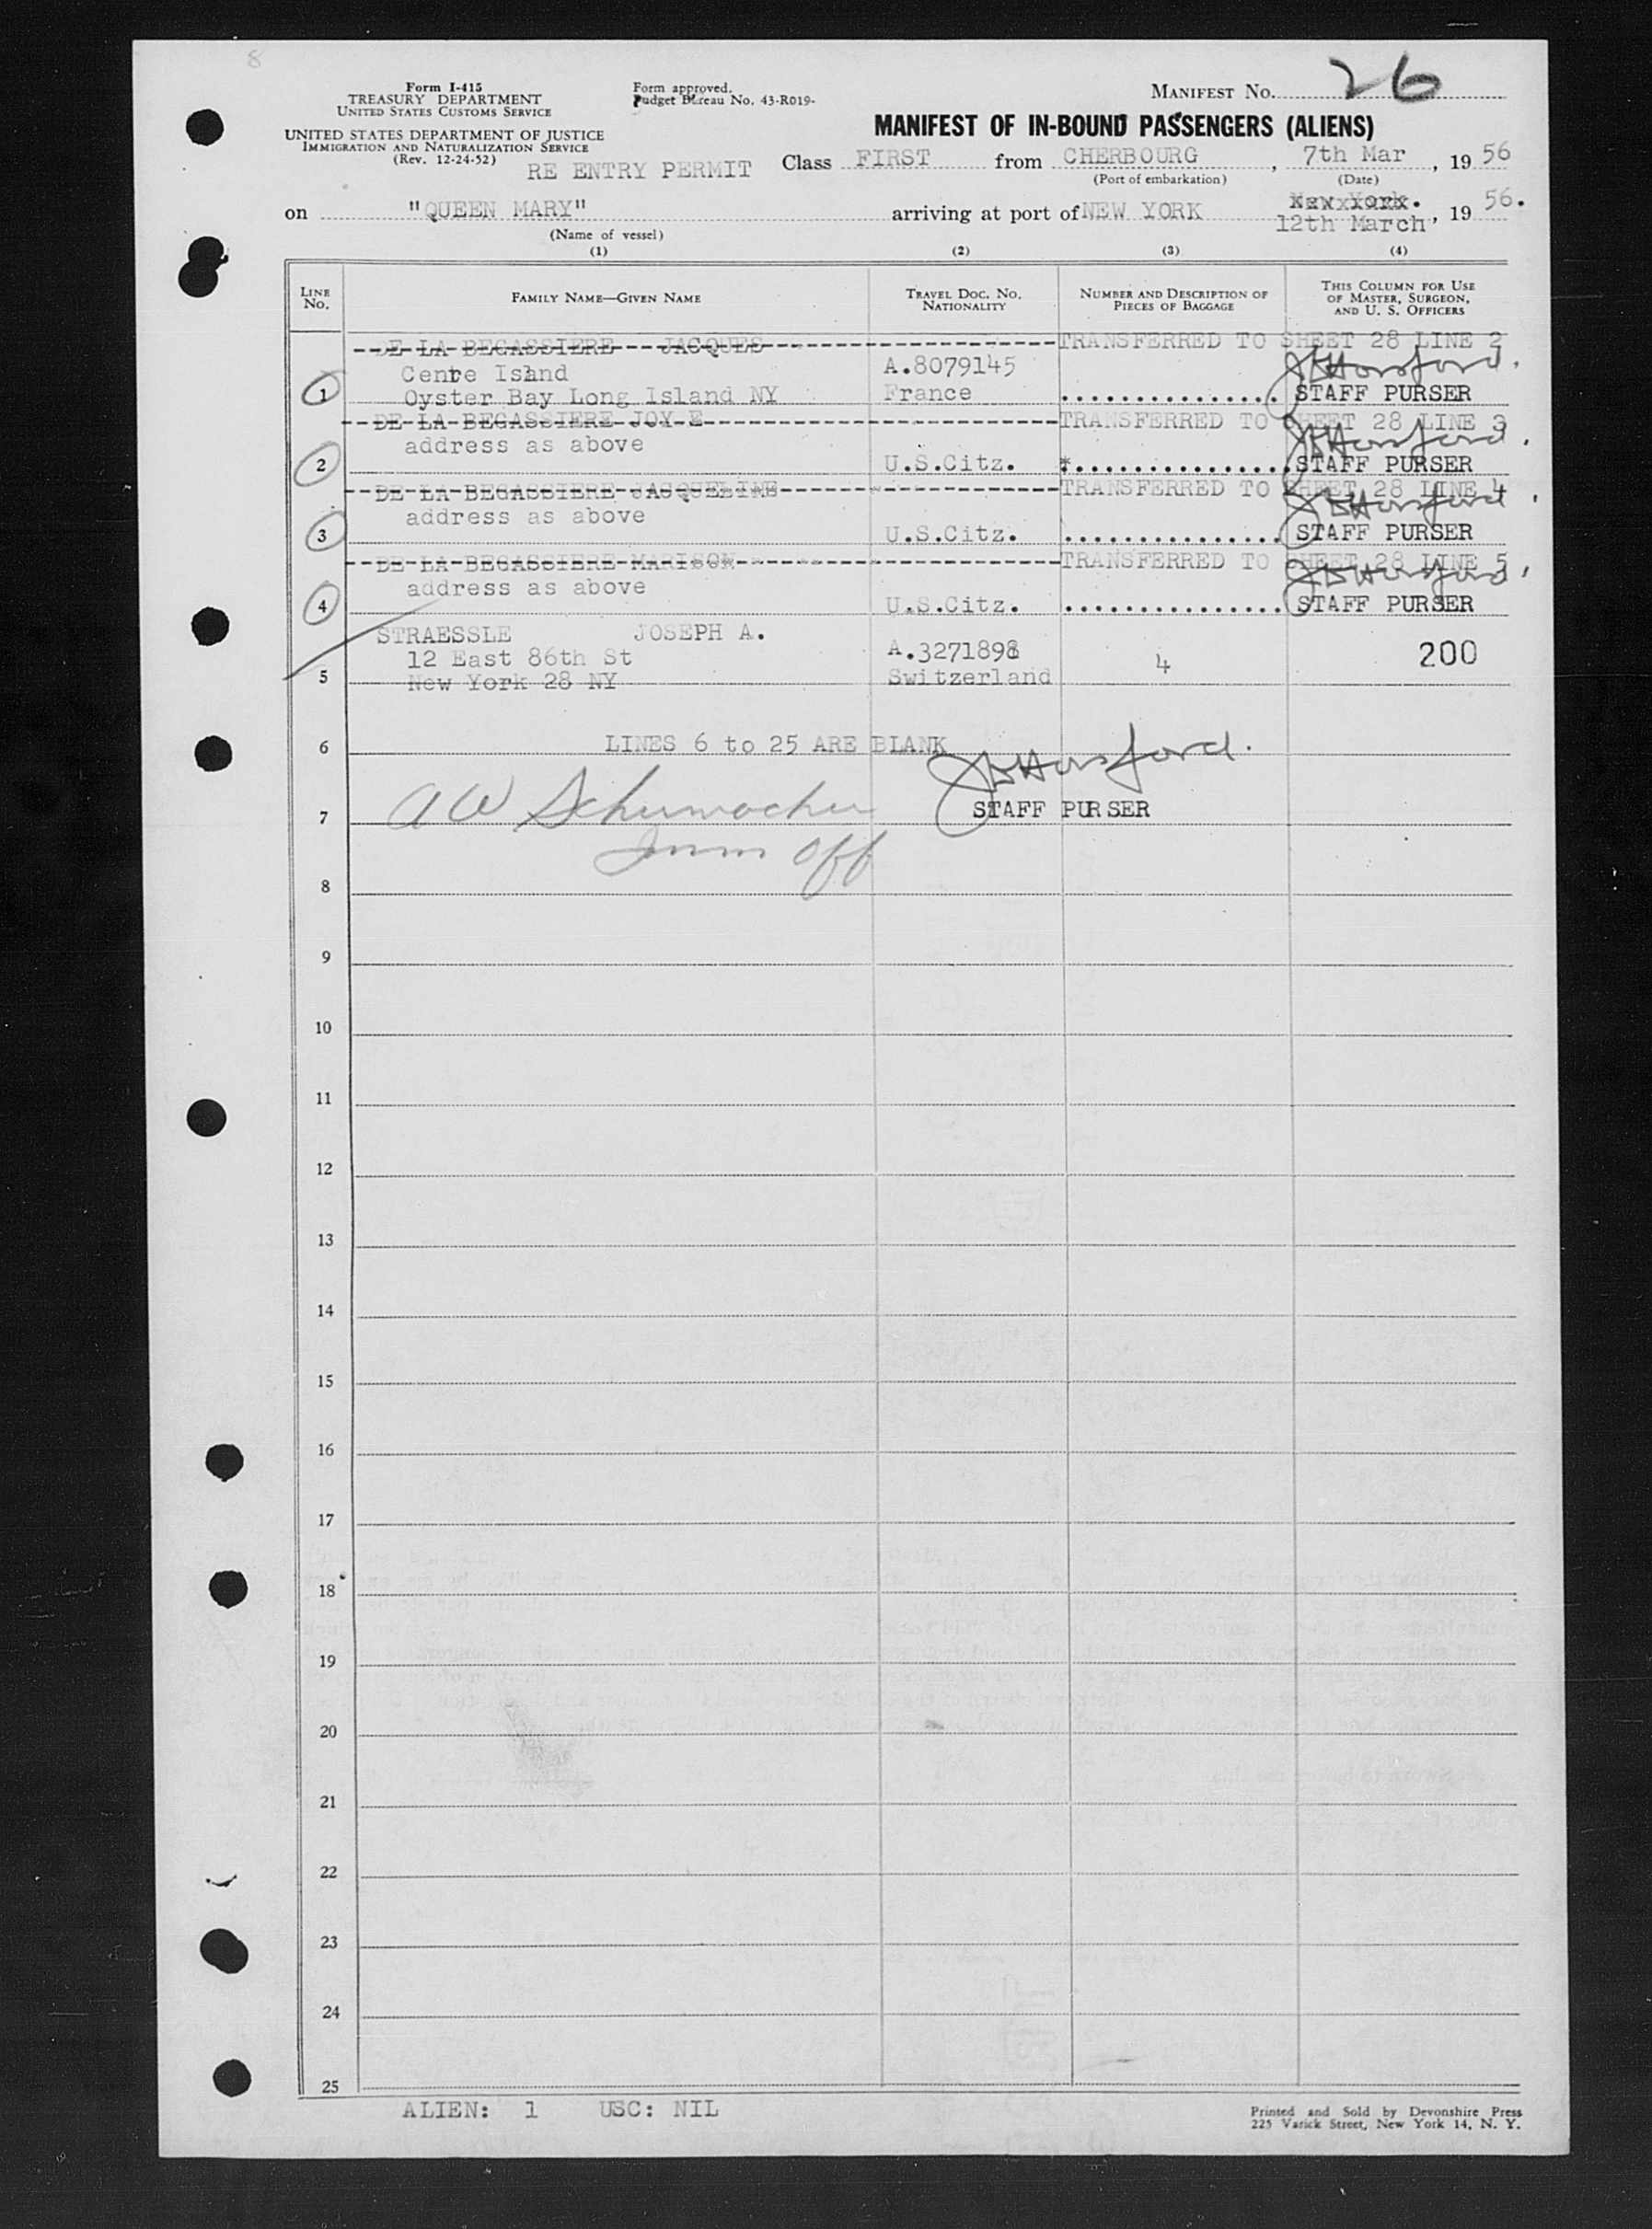 8
Form I-415
TREASURY DEPARTMENT
UNITED STATES CUSTOMS SERVICE
UNITED STATES DEPARTMENT OF JUSTICE
IMMIGRATION AND NATURALIZATION SERVICE
(Rev. 12-24-52)
RE ENTRY PERMIT
Form approved.
Budget Bureau No. 43-R019-
MANIFEST NO. 26
MANIFEST OF IN-BOUND PASSENGERS (ALIENS)
Class FIRST from CHERBOURG, 7th Mar, 19 56
(Port of embarkation) (Date)
on "QUEEN MARY" arriving at port of NEW YORK New York. 12th March, 19 56.
(Name of vessel)
(1) (2) (3) (4)
LINE NO.
FAMILY NAME—GIVEN NAME
TRAVEL DOC. NO. NATIONALITY
NUMBER AND DESCRIPTION OF PIECES OF BAGGAGE
THIS COLUMN FOR USE OF MASTER, SURGEON, AND U. S. OFFICERS
DE LA BEGASSIERE JACQUES TRANSFERRED TO SHEET 28 LINE 2
Centre Island A.8079145 Horsford.
1 Oyster Bay Long Island NY France STAFF PURSER
DE LA BEGASSIERE JOY E TRANSFERRED TO SHEET 28 LINE 3
address as above Horsford.
2 U.S.Citz. STAFF PURSER
DE LA BEGASSIERE JACQUELINE TRANSFERRED TO SHEET 28 LINE 4
address as above Horsford.
3 U.S.Citz. STAFF PURSER
DE LA BEGASSIERE MARISON TRANSFERRED TO SHEET 28 LINE 5
address as above Horsford.
4 U.S.Citz. STAFF PURSER
STRAESSLE JOSEPH A.
12 East 86th St A.3271898 4 200
5 New York 28 NY Switzerland
6 LINES 6 to 25 ARE BLANK Horsford.
7 A W Schumacher STAFF PURSER
Imm Off
8
9
10
11
12
13
14
15
16
17
18
19
20
21
22
23
24
25
ALIEN: 1 USC: NIL
Printed and Sold by Devonshire Press
225 Varick Street, New York 14, N. Y.